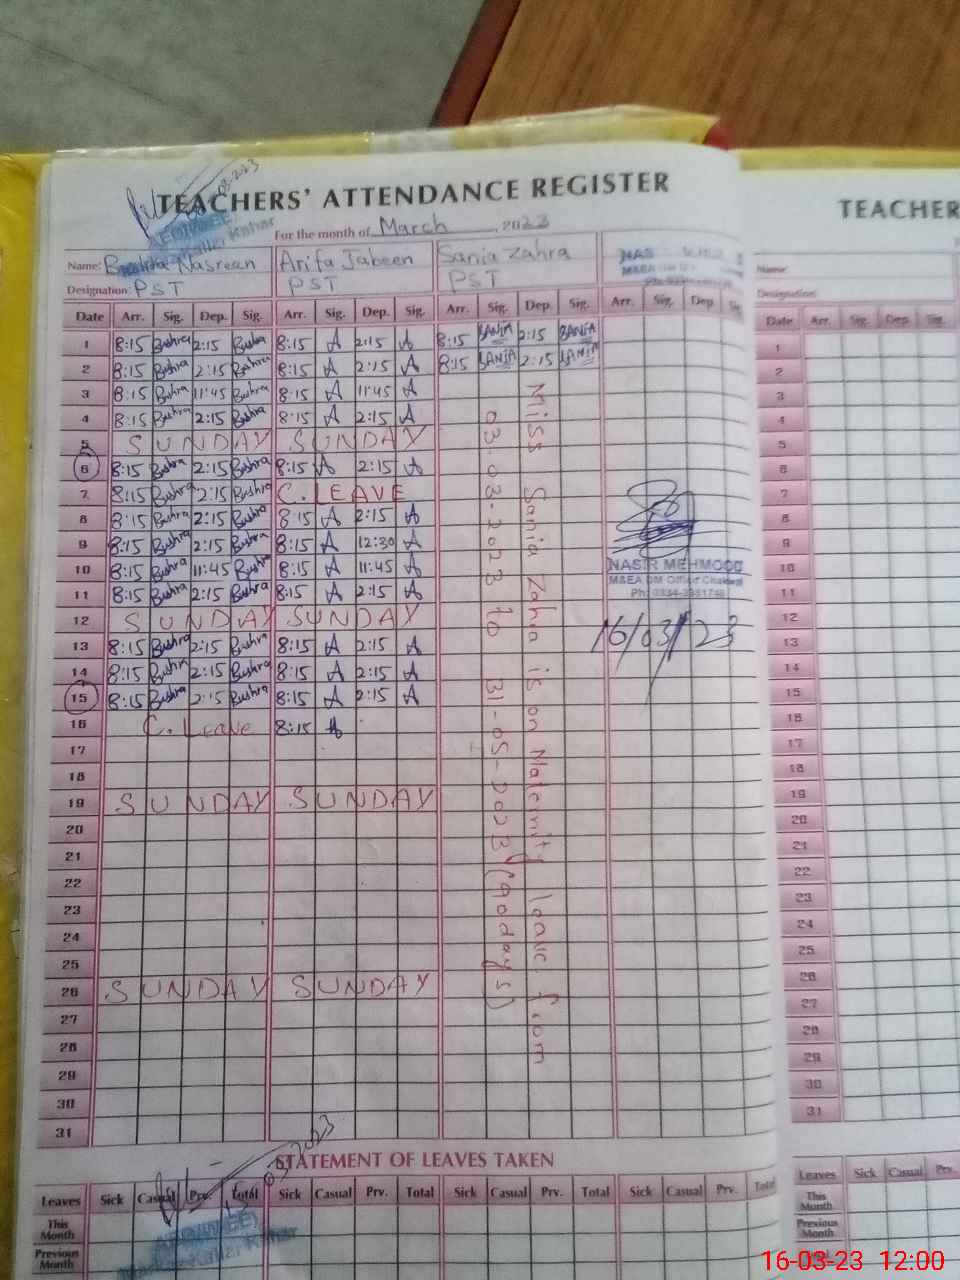 TEACHERS' ATTENDANCE REGISTER
For the month of March, 2023
Name: Bushra Nasreen Arifa Jabeen Sania Zahra
Designation: PST PST PST
Date Arr. Sig. Dep. Sig. Arr. Sig. Dep. Sig. Arr. Sig. Dep. Sig. Arr. Sig. Dep. Sig.
1 8:15 Bushra 2:15 Bushra 8:15 A 2:15 A 8:15 SANIA 2:15 SANIA
2 8:15 Bushra 2:15 Bushra 8:15 A 2:15 A 8:15 SANIA 2:15 SANIA
3 8:15 Bushra 11:45 Bushra 8:15 A 11:45 A
4 8:15 Bushra 2:15 Bushra 8:15 A 2:15 A
5 SUNDAY SUNDAY
6 8:15 Bushra 2:15 Bushra 8:15 A 2:15 A
7 8:15 Bushra 2:15 Bushra C. LEAVE
8 8:15 Bushra 2:15 Bushra 8:15 A 2:15 A
9 8:15 Bushra 2:15 Bushra 8:15 A 12:30 A
10 8:15 Bushra 11:45 Bushra 8:15 A 11:45 A
11 8:15 Bushra 2:15 Bushra 8:15 A 2:15 A
12 SUNDAY SUNDAY
13 8:15 Bushra 2:15 Bushra 8:15 A 2:15 A
14 8:15 Bushra 2:15 Bushra 8:15 A 2:15 A
15 8:15 Bushra 2:15 Bushra 8:15 A 2:15 A
16 C. Leave 8:15 A
17
18
19 SUNDAY SUNDAY
20
21
22
23
24
25
26 SUNDAY SUNDAY
27
28
29
30
31
Miss Sania Zahra is on Maternity leave from
03-03-2023 to 31-05-2023 (90days)
NASIR MEHMOOD
M&EA DM Officer Chakwal
16/03/23
STATEMENT OF LEAVES TAKEN
Leaves Sick Casual Prv. Total Sick Casual Prv. Total Sick Casual Prv. Total Sick Casual Prv. Total
This Month
Previous Month
TEACHER
Name:
Designation:
Date Arr. Sig. Dep. Sig.
1
2
3
4
5
6
7
8
9
10
11
12
13
14
15
16
17
18
19
20
21
22
23
24
25
26
27
28
29
30
31
Leaves Sick Casual Prv.
This Month
Previous Month
16-03-23 12:00